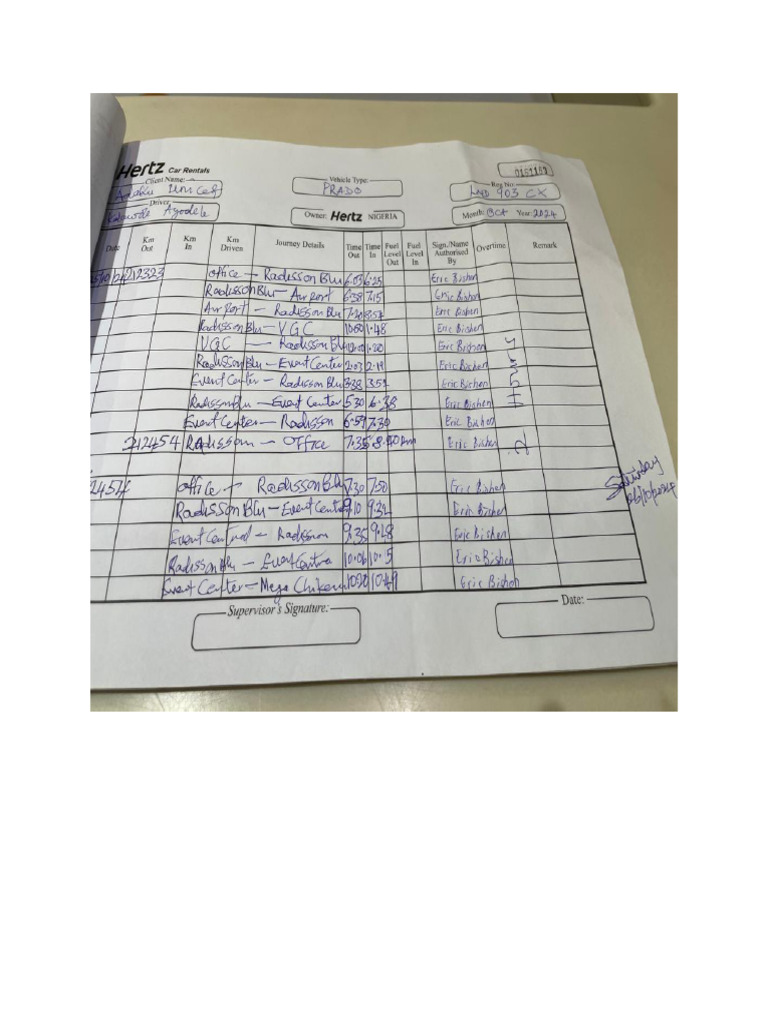 Hertz Car Rentals
0161107
Client Name: Unicef
Vehicle Type: PRADO
Reg No: 903 CX
Driver Ayodele
Owner: Hertz NIGERIA
Month: Oct Year: 2024
Date Km Out Km In Km Driven Journey Details Time Out Time In Fuel Level Out Fuel Level In Sign./Name Authorised By Overtime Remark
212323 Office - Radisson Blu 6:03 6:25 Eric Bishen
Radisson Blu - Airport 6:38 7:15 Eric Bishen
Airport - Radisson Blu 7:20 Eric Bishen
Radisson Blu - VGC 1:48 Eric Bishen
VGC - Radisson Blu Eric Bishen
Radisson Blu - Event Center 2:03 2:19 Eric Bishen
Event Center - Radisson Blu 3:38 Eric Bishen
Radisson Blu - Event Center 5:30 6:38 Eric Bishen
Event Center - Radisson 6:59 7:30 Eric Bishen
212454 Radisson - Office Eric Bishen
Office - Radisson Blu 7:30 7:50 Eric Bishen
Saturday
Radisson Blu - Event Center 9:10 9:32 Eric Bishen
Event Central - Radisson 9:35 Eric Bishen
Radisson Blu - Event Centre 10:06 Eric Bishen
Event Center - Mega Chiken 10:49 Eric Bishen
Supervisor's Signature:
Date: